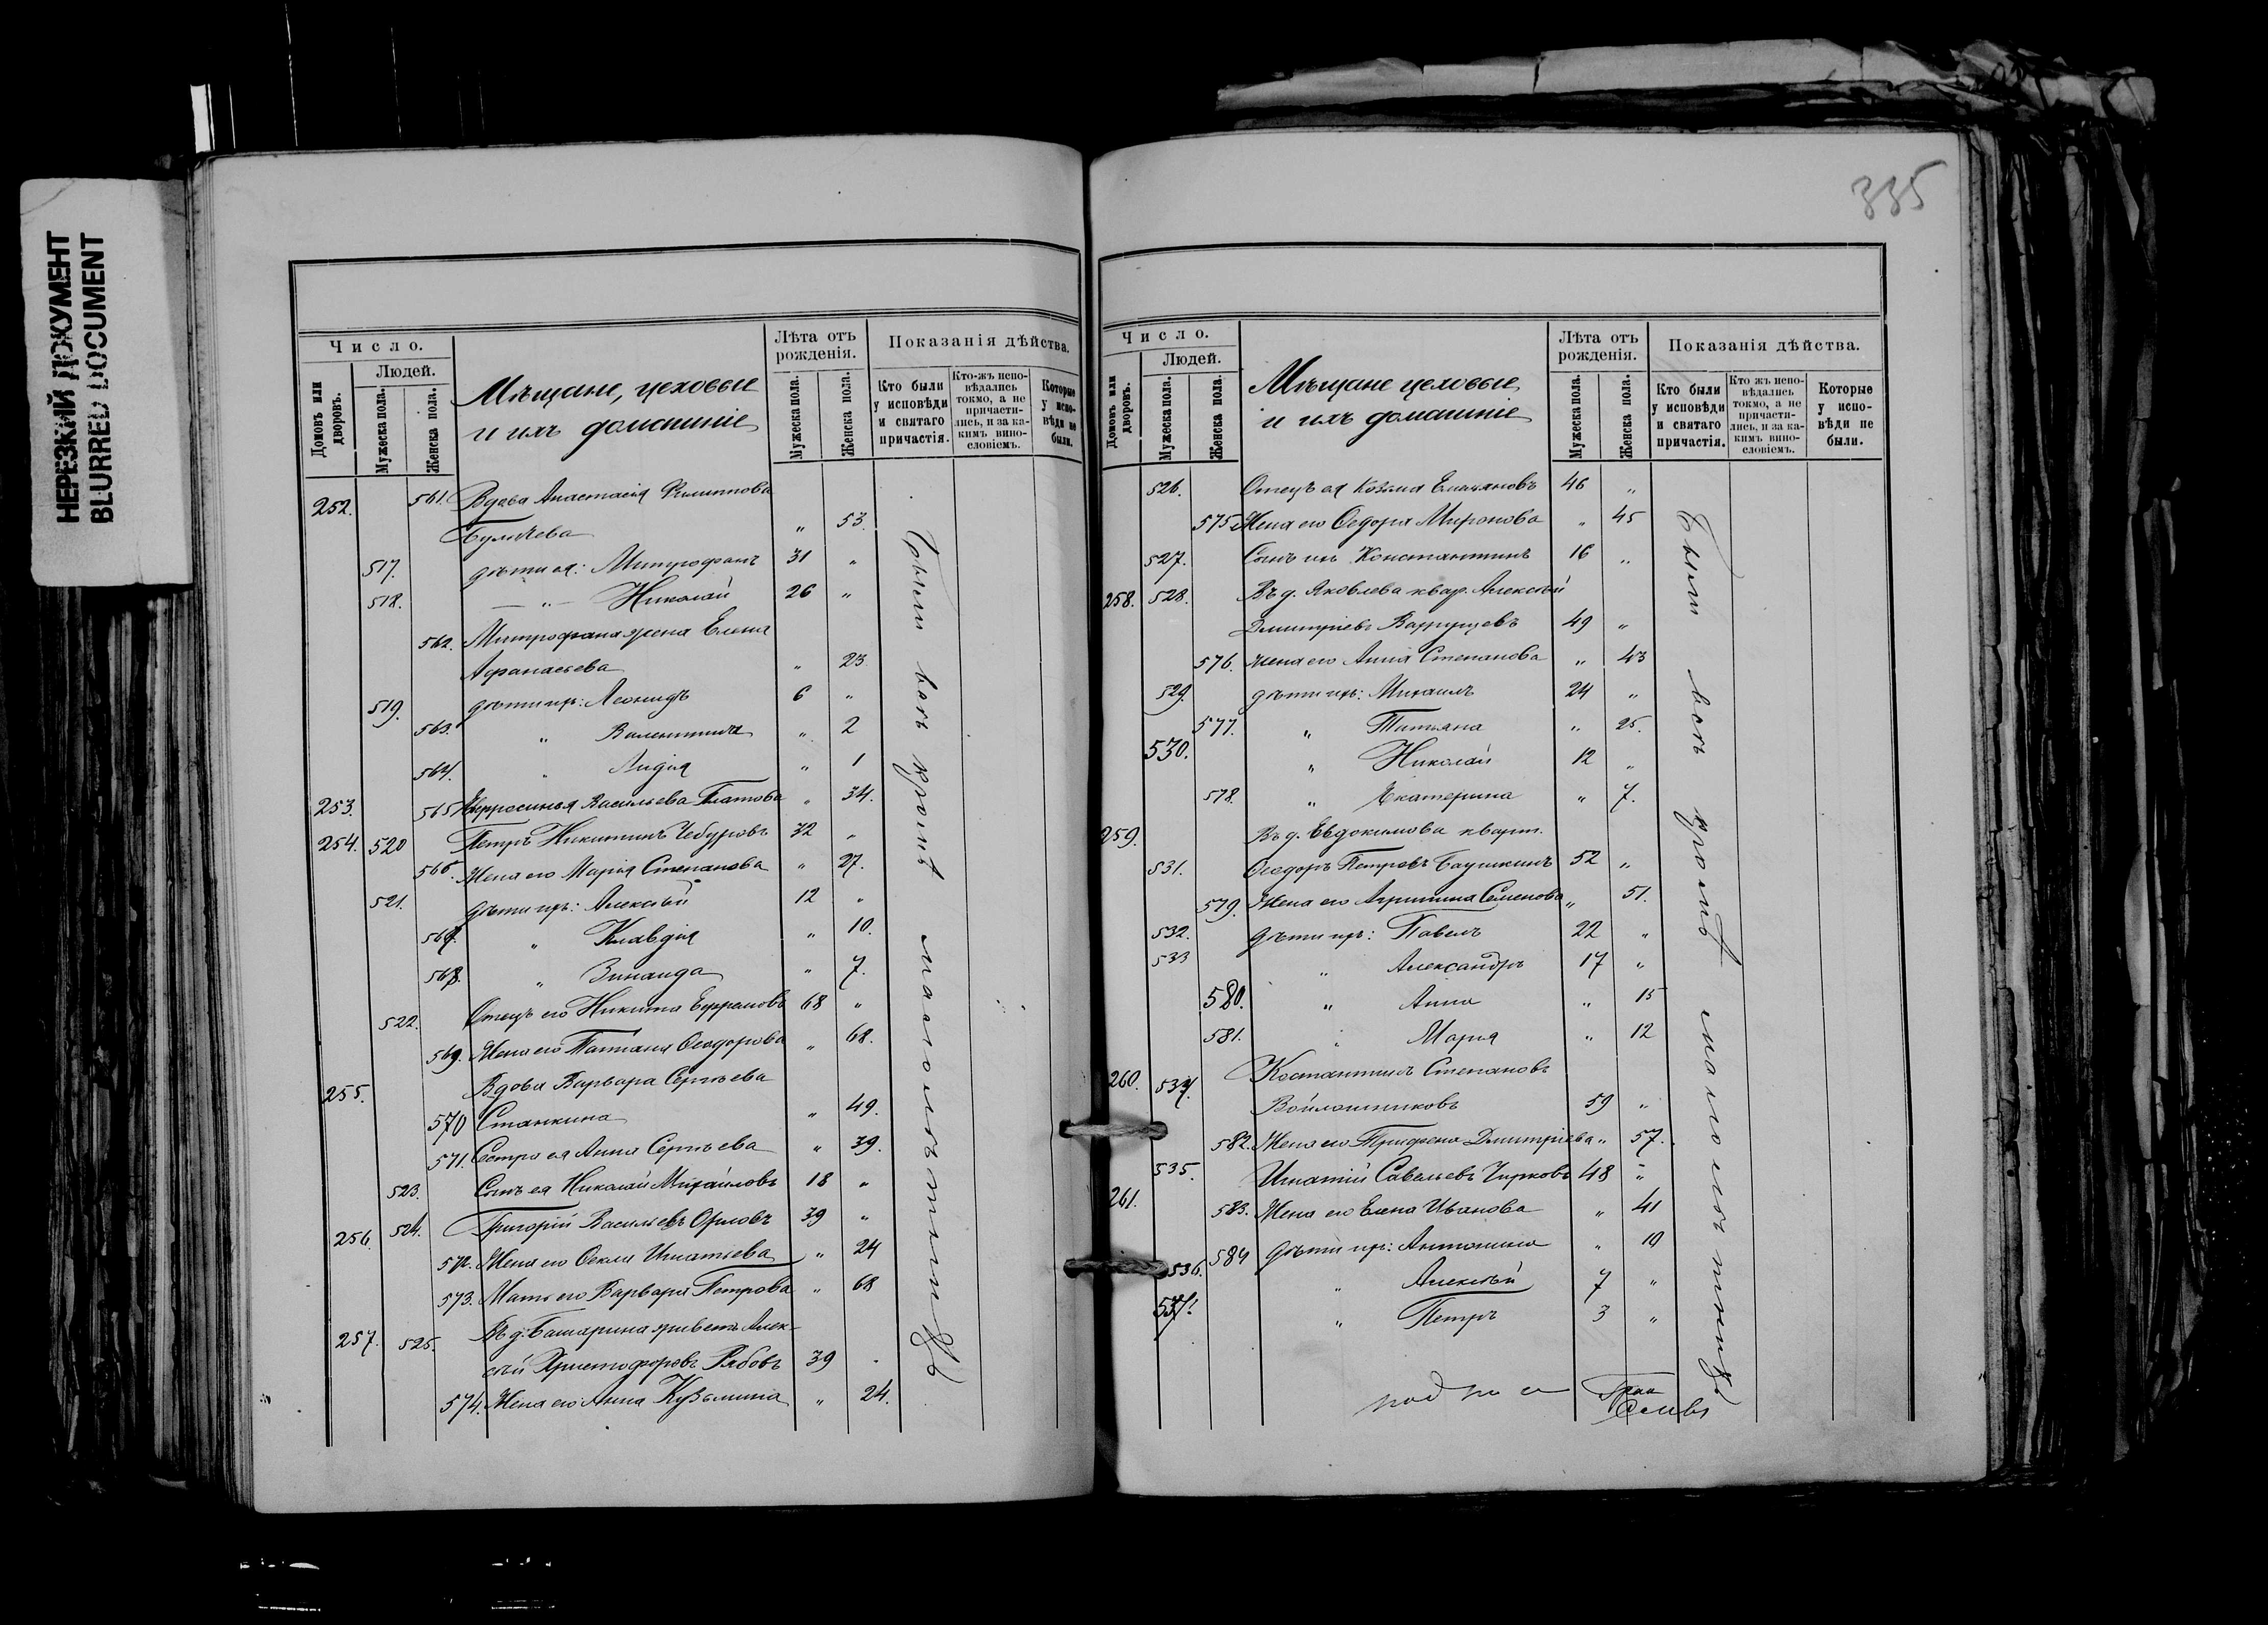 НЕРЕЗКИЙ ДОКУМЕНТ
BLURRED DOCUMENT
335
Число.
Людей.
Домовъ или дворовъ.
Мужеска пола.
Женска пола.
Мѣщане, цеховые
и ихъ домашніе
Лѣта отъ рожденія.
Мужеска пола.
Женска пола.
Показанія дѣйства.
Кто были у исповѣди и святаго причастія.
Кто-жъ исповѣдались токмо, а не причастились, и за какимъ винословіемъ.
Которые у исповѣди не были.
252. 561. Вдова Анастасія Филиппова
Булычева „ 53.
517. дѣти ея: Митрофанъ 31 „
518. — „ — Николай 26 „
562. Митрофана жена Елена
Афанасьева „ 23
519. дѣти ихъ: Леонидъ 6 „
563. „ Валентина „ 2
564. „ Лидія „ 1
253. 565 Евфросинья Васильева Платова „ 34.
254. 520 Петръ Никитинъ Чебуровъ 32 „
566. Жена его Марія Степанова „ 27.
521. дѣти ихъ: Алексѣй 12 „
567. „ Клавдія „ 10.
568. „ Зинаида „ 7.
522. Отецъ его Никита Ефрамовъ 68 „
569. Жена его Татіана Ѳеодорова „ 68.
255. Вдова Варвара Сергѣева
570 Станкина „ 49.
571. Сестра ея Анна Сергѣева „ 39.
523. Сынъ ея Николай Михайловъ 18 „
256. 524. Григорій Васильевъ Орловъ 39 „
572. Жена его Ѳекла Игнатьева „ 24
573. Мать его Варвара Петрова „ 68
257. 525. Въ д. Башарина живетъ Алек-
сѣй Христофоровъ Рябовъ 39 „
574. Жена его Анна Кузьмина „ 24.
Были всѣ кромѣ малолѣтнихъ
Число.
Людей.
Домовъ или дворовъ.
Мужеска пола.
Женска пола.
Мѣщане цеховые
и ихъ домашніе
Лѣта отъ рожденія.
Мужеска пола.
Женска пола.
Показанія дѣйства.
Кто были у исповѣди и святаго причастія.
Кто жъ исповѣдались токмо, а не причастились, и за какимъ винословіемъ.
Которые у исповѣди не были.
526. Отецъ ея Козьма Емельяновъ 46 „
575 Жена его Ѳедора Миронова „ 45
527. Сынъ ихъ Константинъ 16 „
258. 528. Въ д. Яковлева квар. Алексѣй
Дмитріевъ Вахрушевъ 49 „
576. жена его Анна Степанова „ 43
529. дѣти ихъ: Михаилъ 24 „
577. „ Татьяна „ 25.
530. „ Николай 12 „
578. „ Екатерина „ 7.
259. Въ д. Евдокимова кварт.
531. Ѳеодоръ Петровъ Баушкинъ 52 „
579. Жена его Агрипина Семенова „ 51.
532. дѣти ихъ: Павелъ 22 „
533 „ Александръ 17 „
580. „ Анна „ 15
581. „ Марія „ 12
260. 534. Костантинъ Степановъ
Войлошниковъ 59 „
582. Жена его Трифена Дмитріева „ 57.
535. Игнатій Савельевъ Чирковъ 48 „
261. 583. Жена его Елена Иванова „ 41
584 дѣти ихъ: Антонина „ 10
536. „ Алексѣй 7 „
537. „ Петръ 3 „
Были всѣ кромѣ малолѣтнихъ